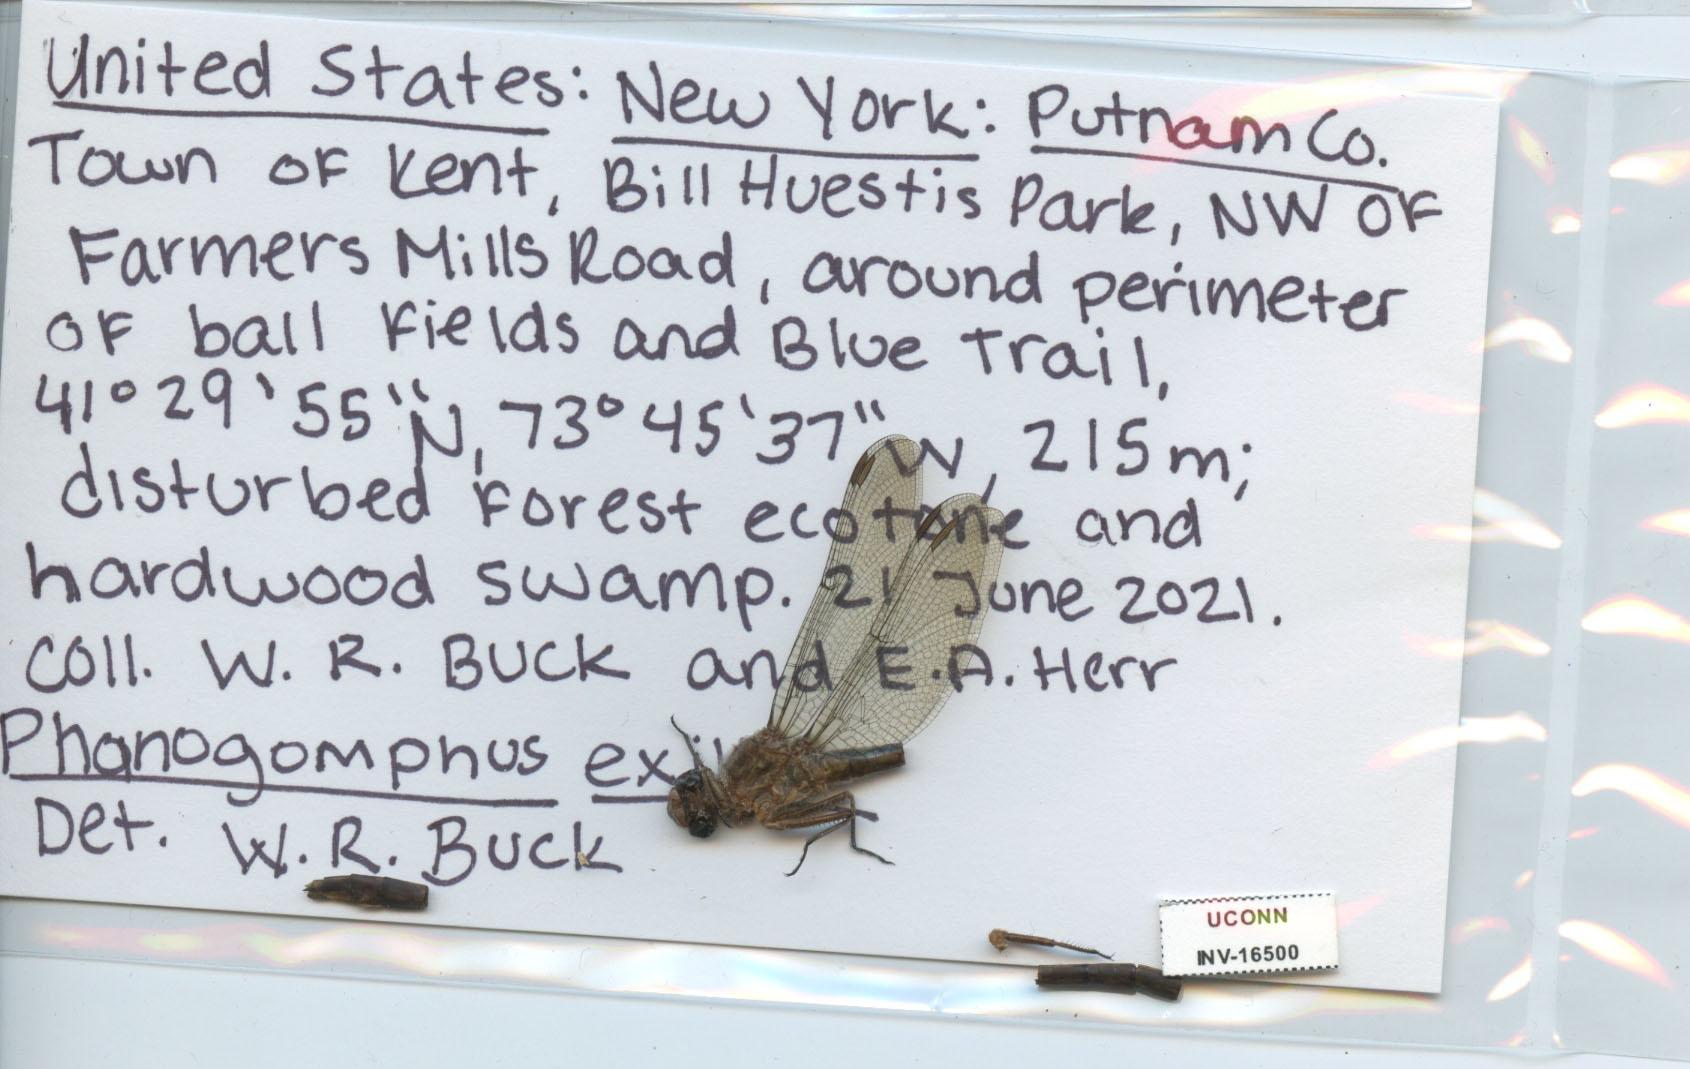 United States: New York: Putnam Co.
Town of Kent, Bill Huestis Park, NW of
Farmers Mills Road, around perimeter
of ball fields and Blue Trail,
41° 29' 55" N, 73° 45' 37" W, 215 m;
disturbed forest ecotone and
hardwood swamp. 21 June 2021.
Coll. W. R. Buck and E. A. Herr
Phanogomphus
Det. W. R. Buck
UCONN
INV-16500